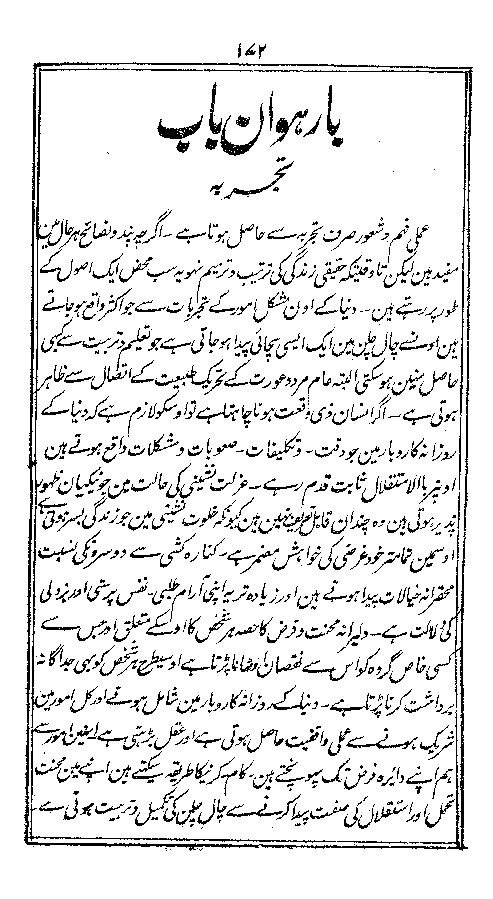 ۱۷۲
بارہوان باب
تجربہ
عملی فہم و شعور صرف تجربہ سے حاصل ہوتا ہے ۔ اگرچہ پند و نصائح ہر حال مین
مفید ہین لیکن تاوقتیکہ حقیقی زندگی کی ترتیب و ترمیم نہو یہ سب محض ایک اصول کے
طور پر رہتے ہین ۔ دنیا کے اون مشکل امور کے تجربات سے جو اکثر واقع ہو جاتے
ہین اونسے چال چلن مین ایک ایسی سچائی پیدا ہو جاتی ہے جو تعلیم و تربیت سے کبھی
حاصل نہین ہو سکتی البتہ عام مرد و عورت کے تحریک طبیعت کے اتصال سے ظاہر
ہوتی ہے ۔ اگر انسان ذی وقعت ہونا چاہتا ہے تو اوسکو لازم ہے کہ دنیا کے
روزانہ کاروبار مین جو دقت ۔ و تکلیفات ۔ صعوبات و مشکلات واقع ہوتے ہین
اونپر بالاستقلال ثابت قدم رہے ۔ عزلت نشینی کی حالت مین جو نیکیان ظہور
پذیر ہوتی ہین وہ چندان قابل تعریف نہین ہین کیونکہ خلوت نشینی مین جو زندگی بسر ہوتی ہے
اوسمین تمامتر خود غرضی کی خواہش مضمر ہے ۔ کنارہ کشی سے دوسرونکی نسبت
محقرانہ خیالات پیدا ہوتے ہین اور زیادہ تر یہ اپنی آرام طلبی ۔ نفس پرستی اور بزدلی
کی دلالت ہے ۔ دلیرانہ محنت و فرض کا حصہ ہر شخص کا اوسکے متعلق اور جس سے
کسی خاص گروہ کو اس سے نقصان اوٹھانا پڑتا ہے اوسیطرح ہر شخص کو بھی جداگانہ
برداشت کرنا پڑتا ہے ۔ دنیا کے روزانہ کاروبار مین شامل ہونے اور کل امور مین
شریک ہونے سے عملی واقفیت حاصل ہوتی ہے اور عقل بڑھتی ہے انھین امور سے
ہم اپنے دایرہ فرض تک پہونچتے ہین ۔ کام کرنیکا طریقہ سیکھتے ہین اپنے مین محنت
تحمل اور استقلال کی صفت پیدا کرنے سے چال چلن کی تکمیل و تربیت ہوتی ہے